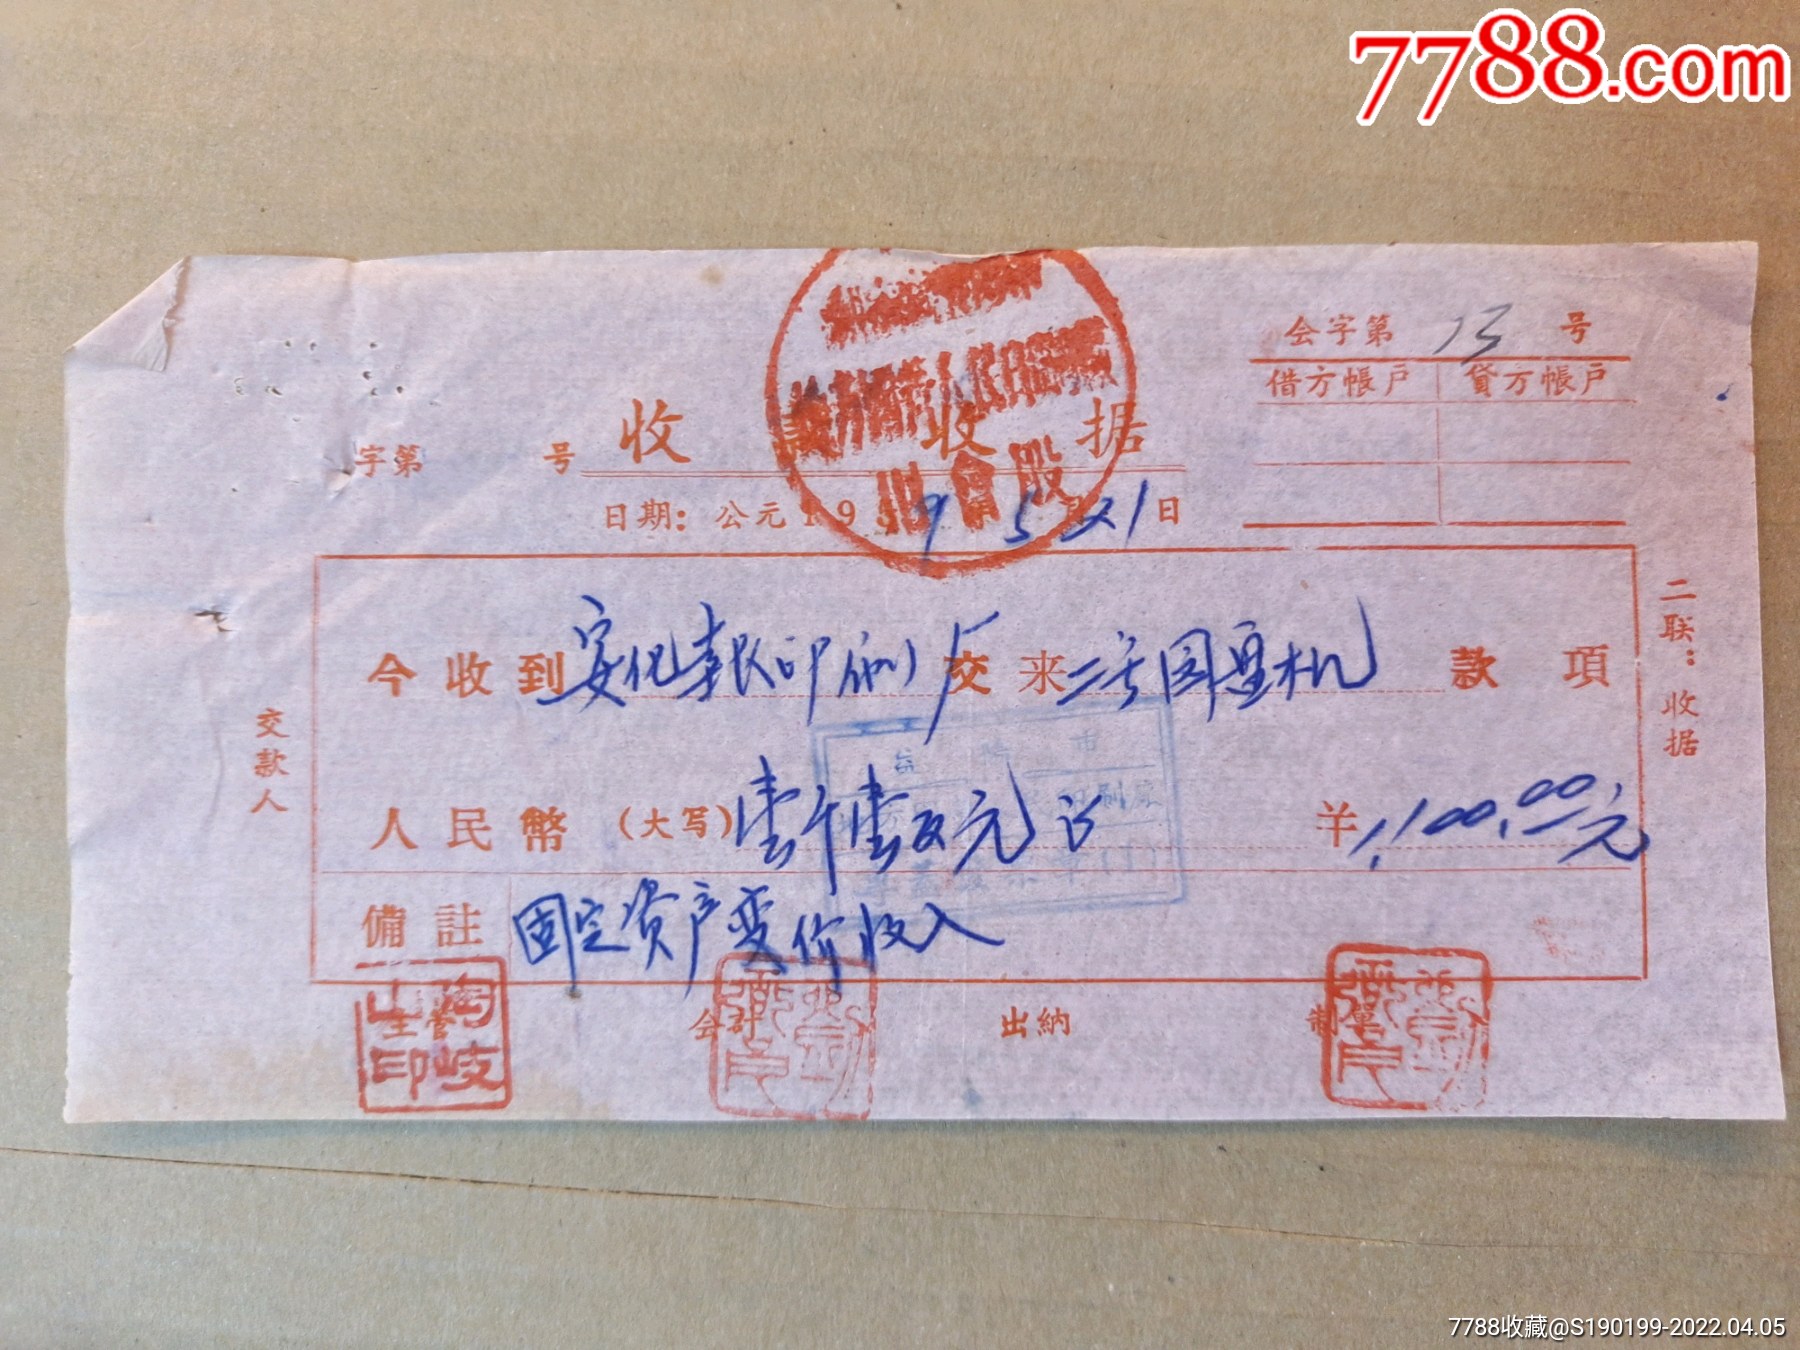 7788.com
会字第 13 号
借方帳戶 貸方帳戶
字第 号 收 款 收 据
日期：公元1959 5月21日
今收到安化報印刷厂交来二号园盘机 款項
人民幣（大写）壹千壹百元正 羊1,100.00元
備註 固定资产变价收入
交款人
二联：收据
主管 会計 出納 制單
陶岐山印
益 陽 市
會 股
7788收藏@S190199-2022.04.05